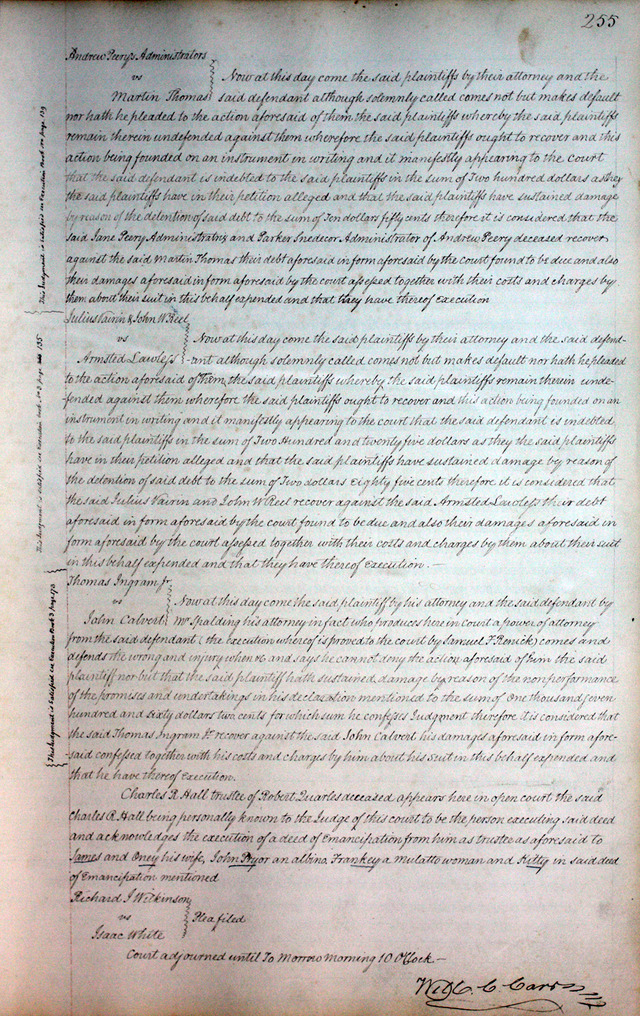 255
Andrew Peery's Administrators
vs Now at this day come the said plaintiffs by their attorney and the
Martin Thomas said defendant although solemnly called comes not but makes default
nor hath he pleaded to the action aforesaid of them the said plaintiffs whereby the said plaintiffs
remain therein undefended against them wherefore the said plaintiffs ought to recover and this
action being founded on an instrument in writing and it manifestly appearing to the court
that the said defendant is indebted to the said plaintiffs in the sum of Two hundred dollars as they
the said plaintiffs have in their petition alleged and that the said plaintiffs have sustained damage
by reason of the detention of said debt to the sum of Ten dollars fifty cents therefore it is considered that the
said Jane Peery Administratrix and Parker Snedecor Administrator of Andrew Peery deceased recover
against the said Martin Thomas their debt aforesaid in form aforesaid by the court found to be due and also
their damages aforesaid in form aforesaid by the court assessed together with their costs and charges by
them about their suit in this behalf expended and that they have thereof execution
This judgment is satisfied see Execution Book on page 129
Julius Vairin & John W Reel
vs Now at this day come the said plaintiffs by their attorney and the said defend-
Armsted Lawless -ant although solemnly called comes not but makes default nor hath he pleaded
to the action aforesaid of them, the said plaintiffs whereby the said plaintiffs remain therein unde-
fended against them wherefore the said plaintiffs ought to recover and this action being founded on an
instrument in writing and it manifestly appearing to the court that the said defendant is indebted
to the said plaintiffs in the sum of Two Hundred and twenty five dollars as they the said plaintiffs
have in their petition alleged and that the said plaintiffs have sustained damage by reason of
the detention of said debt to the sum of Two dollars Eighty five cents therefore it is considered that
the said Julius Vairin and John W Reel recover against the said Armsted Lawless their debt
aforesaid in form aforesaid by the court found to be due and also their damages aforesaid in
form aforesaid by the court assessed together with their costs and charges by them about their suit
in this behalf expended and that they have thereof execution.—
This judgment is satisfied see Execution Book page 135
Thomas Ingram jr.
vs Now at this day come the said plaintiff by his attorney and the said defendant by
John Calvert Mr Spalding his attorney in fact who produces here in court a power of attorney
from the said defendant (the execution whereof is proved to the court by Samuel T. Renick) comes and
defends the wrong and injury when &c and says he cannot deny the action aforesaid of him the said
plaintiff nor but that the said plaintiff hath sustained damage by reason of the nonperformance
of the promises and undertakings in his declaration mentioned to the sum of One thousand seven
hundred and sixty dollars two cents for which sum he confesses Judgment therefore it is considered that
the said Thomas Ingram Jr recover against the said John Calvert his damages aforesaid in form afore-
said confessed together with his costs and charges by him about his suit in this behalf expended and
that he have thereof Execution.
This judgment is satisfied see Execution Book page 178
Charles R Hall trustee of Robert Quarles deceased appears here in open court the said
Charles R Hall being personally known to the Judge of this court to be the person executing said deed
and acknowledges the execution of a deed of Emancipation from him as trustee as aforesaid to
James and Oney his wife, John Pryor an albino, Frankey a Mulatto woman and Kitty in said deed
of Emancipation mentioned
Richard J Wilkinson
vs Plea filed
Isaac White
Court adjourned until To Morrow morning 10 O'Clock—
Wm C. Carr